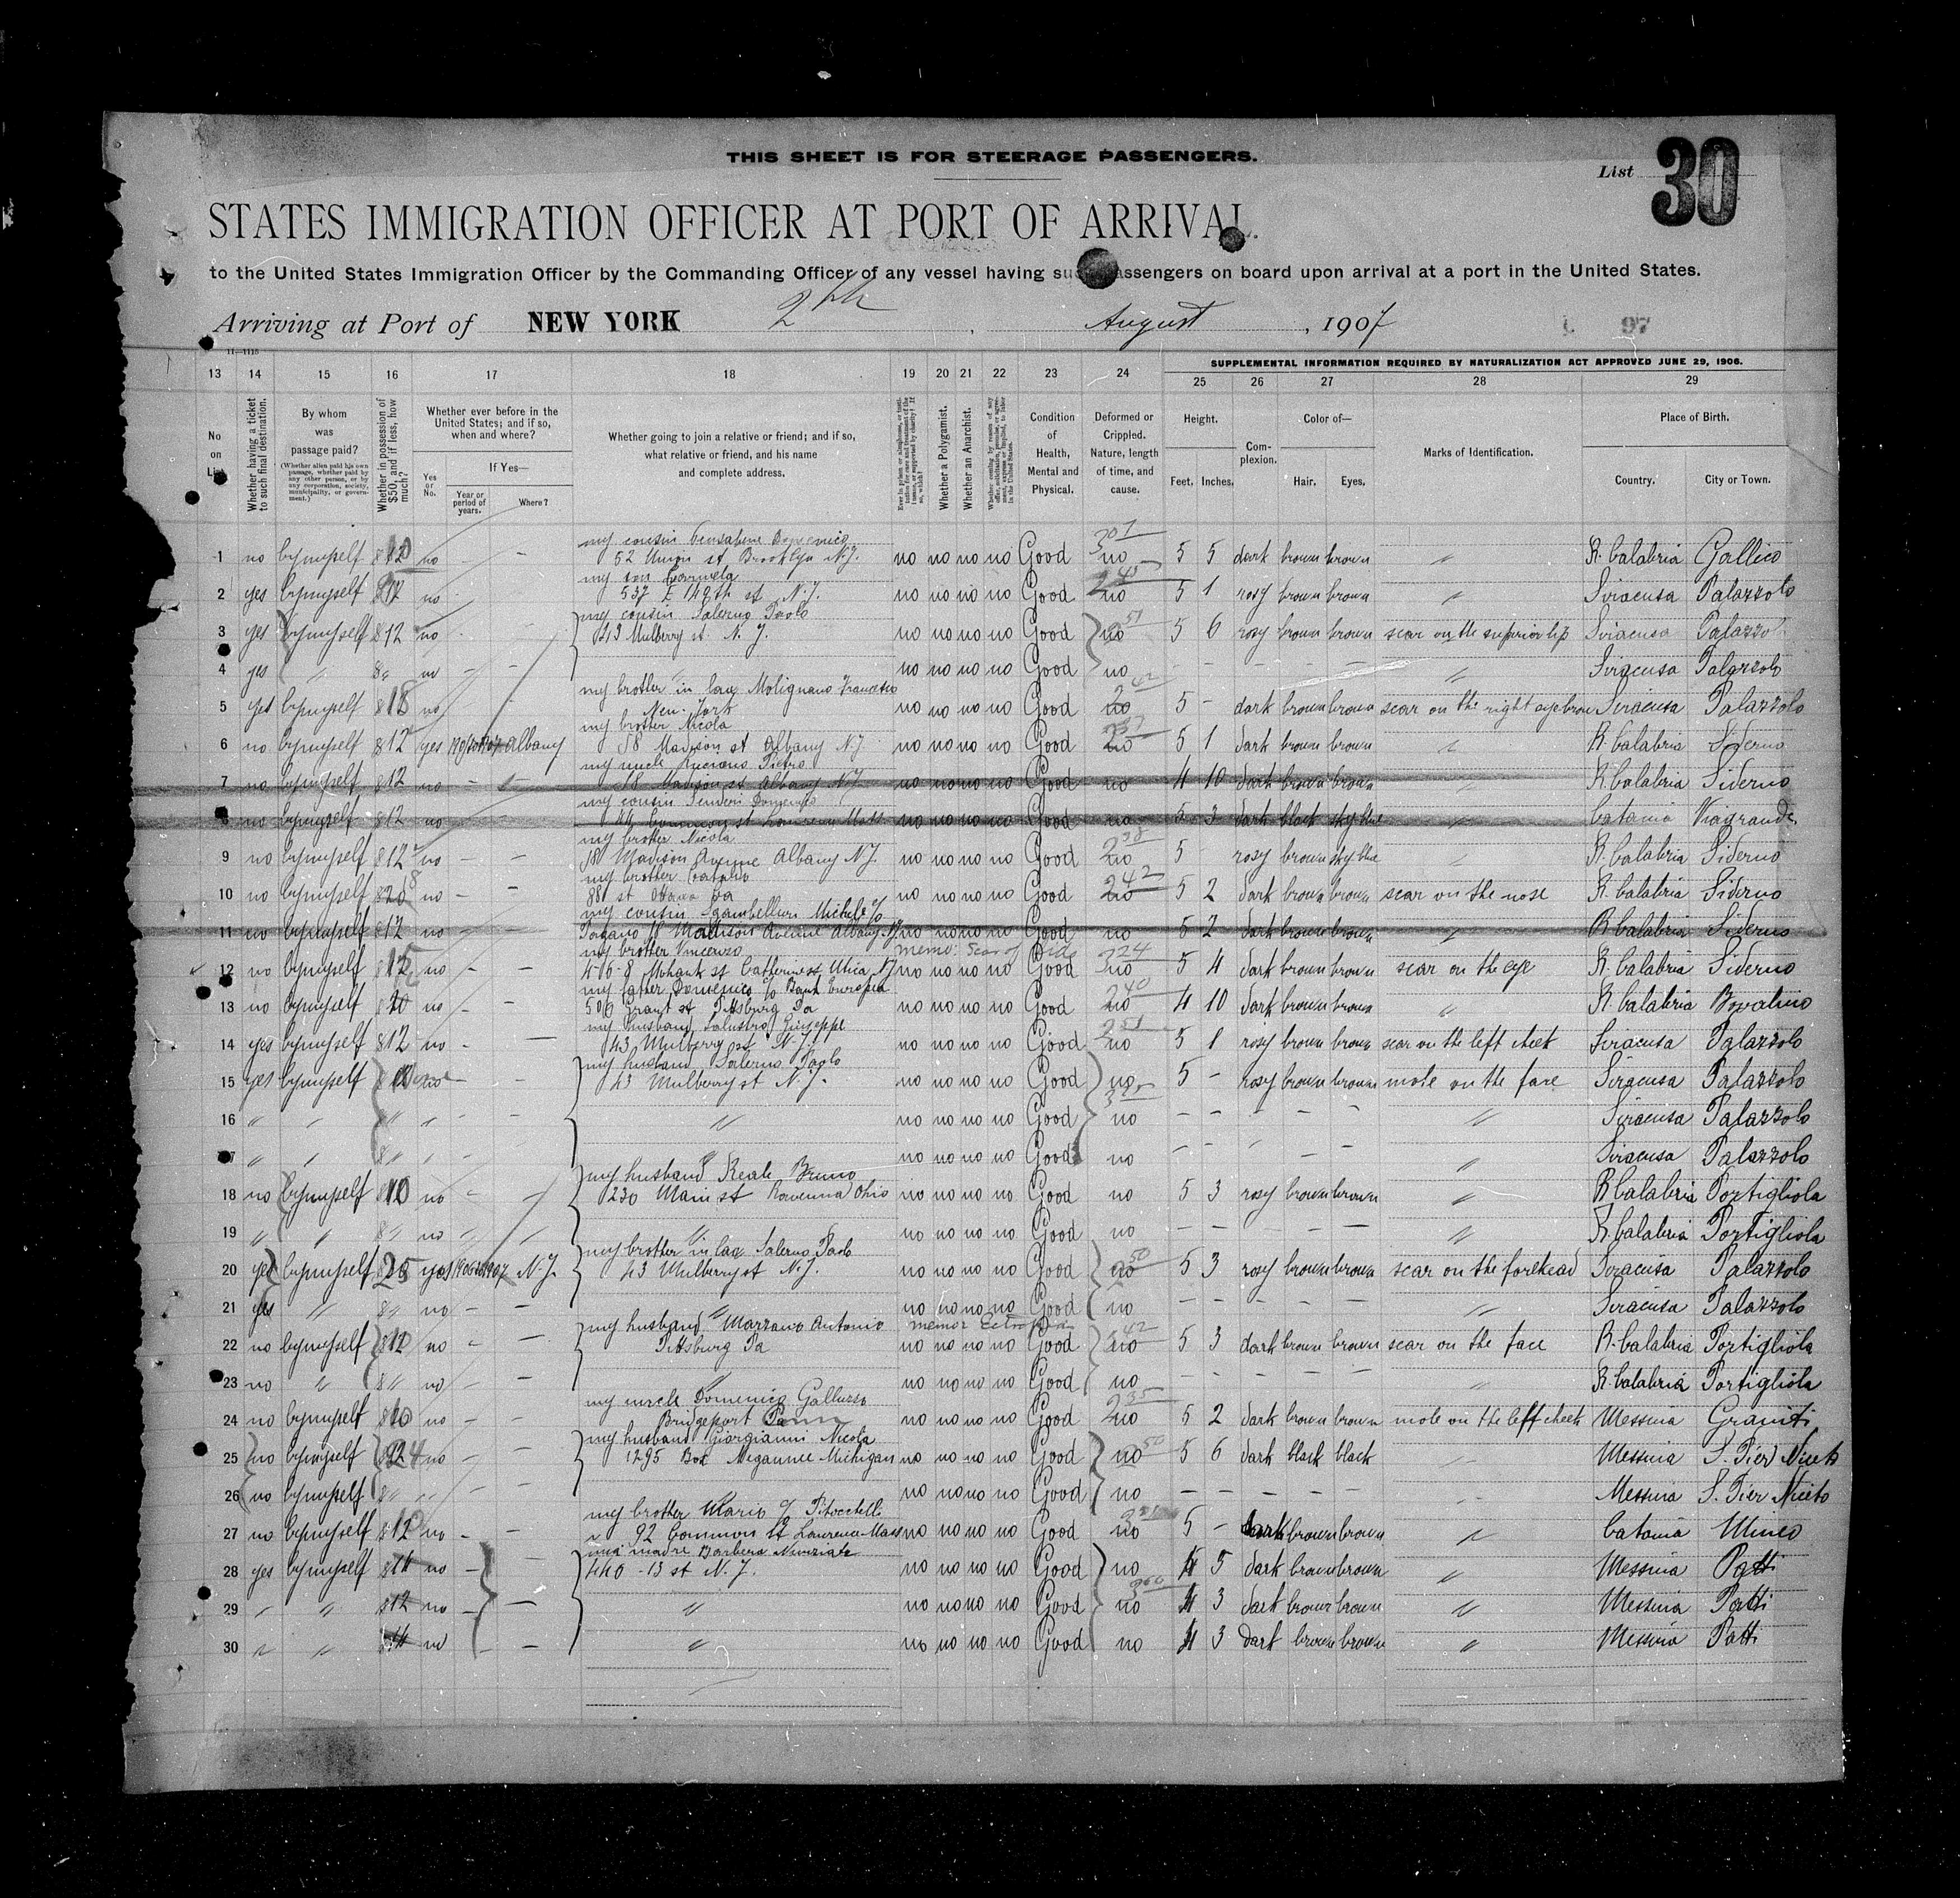 THIS SHEET IS FOR STEERAGE PASSENGERS.
List 30
STATES IMMIGRATION OFFICER AT PORT OF ARRIVAL.
to the United States Immigration Officer by the Commanding Officer of any vessel having such passengers on board upon arrival at a port in the United States.
Arriving at Port of NEW YORK 2th, August, 1907
97
SUPPLEMENTAL INFORMATION REQUIRED BY NATURALIZATION ACT APPROVED JUNE 29, 1906.
13 14 15 16 17 18 19 20 21 22 23 24 25 26 27 28 29
No on List
Whether having a ticket to such final destination.
By whom was passage paid?
(Whether alien paid his own passage, whether paid by any other person, or by any corporation, society, municipality, or government.)
Whether in possession of $50, and if less, how much?
Whether ever before in the United States; and if so, when and where?
Yes or No.
If Yes—
Year or period of years.
Where?
Whether going to join a relative or friend; and if so, what relative or friend, and his name and complete address.
Whether a Polygamist.
Whether an Anarchist.
Condition of Health, Mental and Physical.
Deformed or Crippled. Nature, length of time, and cause.
Height.
Feet. Inches.
Complexion.
Color of—
Hair. Eyes.
Marks of Identification.
Place of Birth.
Country. City or Town.
my cousin Domenico
1 no bymyself no - 52 Union st Brooklyn N.Y. no no no no Good no 5 5 dark brown brown " R. Calabria Gallico
my son Carmela
2 yes bymyself no 537 E 149th st N.Y. no no no no Good no 5 1 rosy brown brown " Siracusa Palazzolo
my cousin Salerno Paolo
3 yes bymyself 12 no 43 Mulberry st N.Y. no no no no Good no 5 6 rosy brown brown scar on the superior lip Siracusa Palazzolo
4 yes " " no - no no no no Good no - - - - " Siracusa Palazzolo
my brother in law Molignano Francesco
5 yes bymyself 18 no New-York no no no no Good no 5 - dark brown brown scar on the right eyebrow Siracusa Palazzolo
my brother Nicola
6 no bymyself 12 yes Albany 18 Madison st Albany N.Y. no no no no Good no 5 1 dark brown brown " R. Calabria Siderno
my uncle Pietro
7 no bymyself 12 no - - 18 Madison st Albany N.Y. no no no no Good no 4 10 dark brown brown " R. Calabria Siderno
my cousin
8 no bymyself 12 no - Common st Lawrence Mass no no no no Good no 5 3 dark black sky blue " Catania Viagrande
my brother Nicola
9 no bymyself 12 no - - 18 Madison Avenue Albany N.Y. no no no no Good no 5 rosy brown sky blue " R. Calabria Siderno
my brother Cataldo
10 no bymyself 20 no - - no no no no Good no 5 2 dark brown brown scar on the nose R. Calabria Siderno
my cousin Sgambelluri Michele c/o
11 no bymyself 12 no - - Madison Avenue Albany N.Y. no no no no Good no 5 2 dark brown brown " R. Calabria Siderno
my brother Vincenzo memo: Scar of
12 no bymyself 12 no - - Catherine st Utica N.Y. no no no no Good no 5 4 dark brown brown scar on the eye R. Calabria Siderno
my father Domenico c/o Bank Europea
13 no bymyself no - - 506 Grant st Pittsburg Pa no no no no Good no 4 10 dark brown brown " R. Calabria Bovalino
my husband Salustro Giuseppe
14 yes bymyself 12 no - - 43 Mulberry st N.Y. no no no no Good no 5 1 rosy brown brown scar on the left cheek Siracusa Palazzolo
my husband Salerno Paolo
15 yes bymyself - - 43 Mulberry st N.Y. no no no no Good no 5 - rosy brown brown mole on the face Siracusa Palazzolo
16 " " " " - - " no no no no Good no - - - - " Siracusa Palazzolo
17 " " " " - - " no no no no Good no - - - - " Siracusa Palazzolo
my husband Reale Bruno
18 no bymyself 10 no - - 230 Main st Ravenna Ohio no no no no Good no 5 3 rosy brown brown " R. Calabria Portigliola
19 " " " no " " " no no no no Good no - - - - " R. Calabria Portigliola
my brother in law Salerno Paolo
20 yes bymyself 25 yes N.Y. 43 Mulberry st N.Y. no no no no Good no 5 3 rosy brown brown scar on the forehead Siracusa Palazzolo
21 yes " " no - - " no no no no Good no - - - - " Siracusa Palazzolo
my husband Marzano Antonio
22 no bymyself 10 no - - Pittsburg Pa no no no no Good no 5 3 dark brown brown scar on the face R. Calabria Portigliola
23 no " " no - - " no no no no Good no - - - - " R. Calabria Portigliola
my uncle Domenico Galluzzo
24 no bymyself 10 no - - Bridgeport no no no no Good no 5 2 dark brown brown mole on the left cheek Messina Graniti
my husband Giorgianni Nicola
25 no bymyself 24 no - - 1295 Box Negaunee Michigan no no no no Good no 5 6 dark black black Messina S. Pier Niceto
26 no bymyself " " " no no no no Good no - - - - Messina S. Pier Niceto
my brother Mario c/o Pitocchelli
27 no bymyself no - - 92 Common st Lawrence Mass no no no no Good no 5 - dark brown brown " Catania Mineo
mia madre Barbera Nunziata
28 yes bymyself no - - 440 - 13 st N.Y. no no no no Good no 4 5 dark brown brown " Messina Patti
29 " " 12 no - - " no no no no Good no 4 3 dark brown brown " Messina Patti
30 " " no - - " no no no no Good no 4 3 dark brown brown " Messina Patti